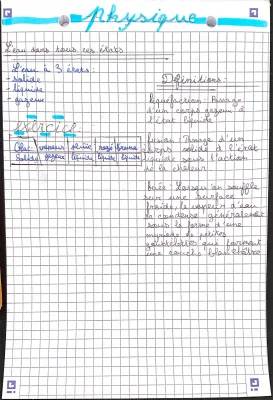 physique
L'eau dans tous ces états
L'eau à 3 états:
- solide
- liquide
- gazeux
exercice
vapeur
Solide | gazeux | liquide | liquide | liquide
Définitions:
liquéfaction: Passage
d'un corps gazeux à
l'état liquide
fusion: Passage d'un
corps solide à l'état
liquide sous l'action
de la chaleur
Buée: Lorsqu'on souffle
sur une surface
froide, la vapeur d'eau
se condense généralement
sous la forme d'une
myriade de petites
gouttelettes qui forment
une couche blanchâtre